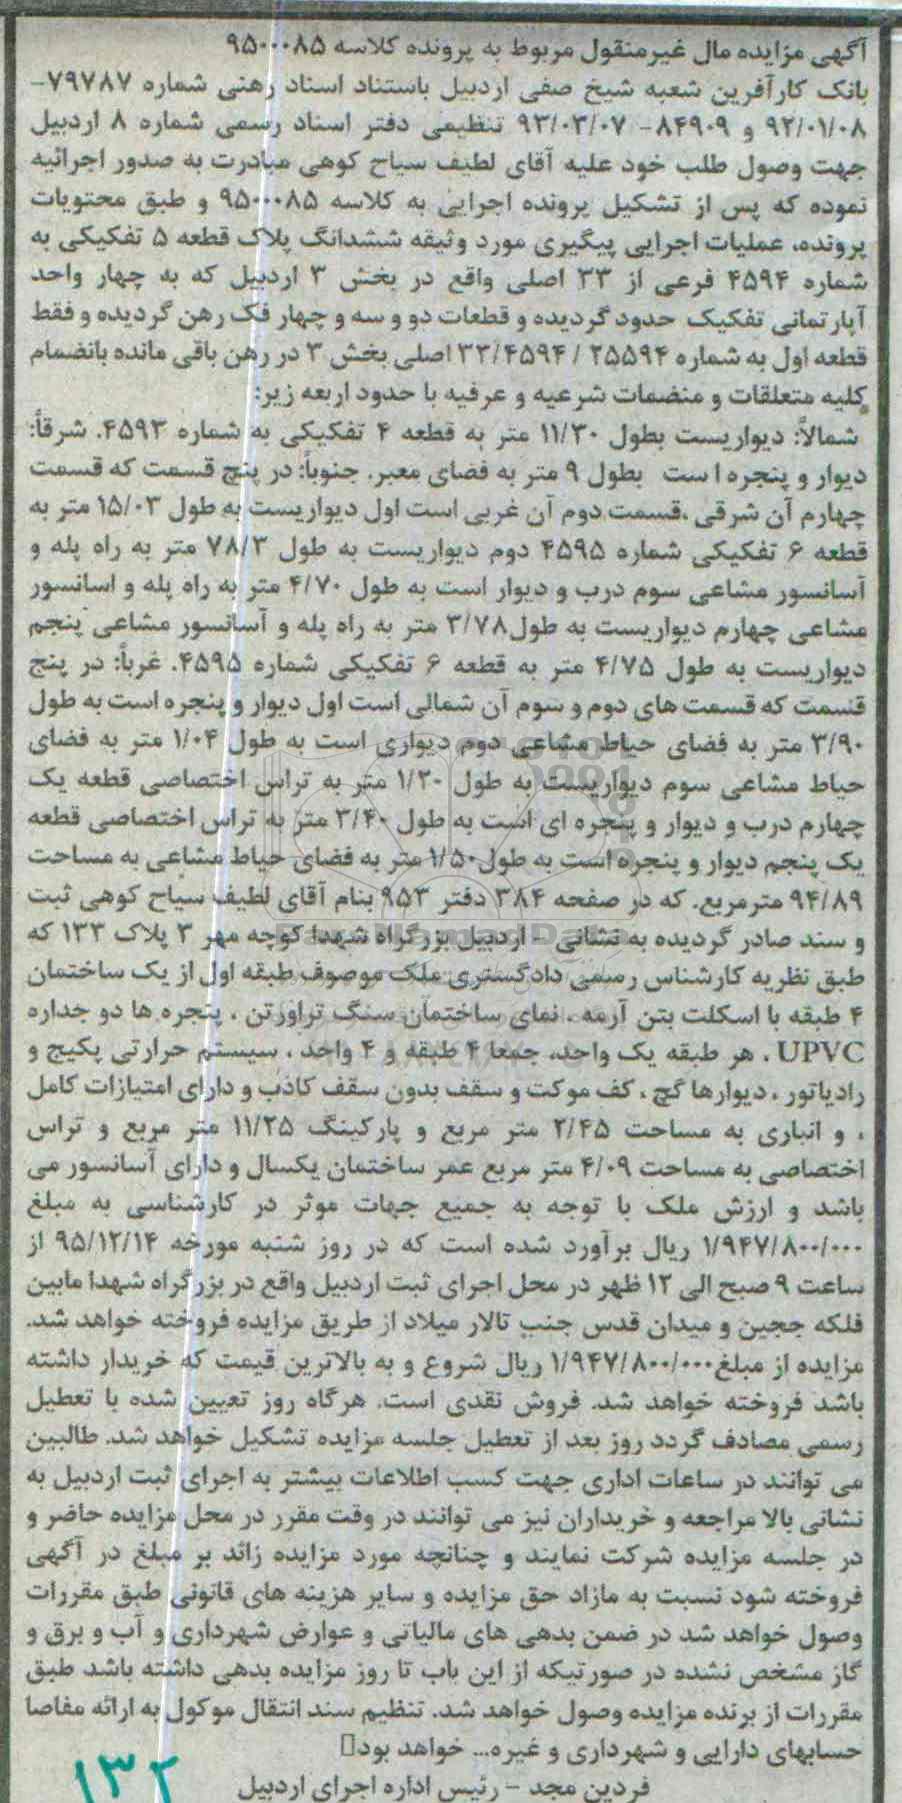 آگهی مزایده مال غیرمنقول مربوط به پرونده کلاسه ۹۵۰۰۰۸۵
بانک کارآفرین شعبه شیخ صفی اردبیل باستناد اسناد رهنی شماره ۷۹۷۸۷-
۹۲/۰۱/۰۸ و ۸۴۹۰۹- ۹۳/۰۳/۰۷ تنظیمی دفتر اسناد رسمی شماره ۸ اردبیل
جهت وصول طلب خود علیه آقای لطیف سیاح کوهی مبادرت به صدور اجرائیه
نموده که پس از تشکیل پرونده اجرایی به کلاسه ۹۵۰۰۰۸۵ و طبق محتویات
پرونده، عملیات اجرایی پیگیری مورد وثیقه ششدانگ پلاک قطعه ۵ تفکیکی به
شماره ۴۵۹۴ فرعی از ۳۳ اصلی واقع در بخش ۳ اردبیل که به چهار واحد
آپارتمانی تفکیک حدود گردیده و قطعات دو و سه و چهار فک رهن گردیده و فقط
قطعه اول به شماره ۲۵۵۹۴ / ۳۳/۴۵۹۴ اصلی بخش ۳ در رهن باقی مانده بانضمام
کلیه متعلقات و منضمات شرعیه و عرفیه با حدود اربعه زیر:
شمالاً: دیواریست بطول ۱۱/۳۰ متر به قطعه ۴ تفکیکی به شماره ۴۵۹۳. شرقاً:
دیوار و پنجره است بطول ۹ متر به فضای معبر. جنوباً: در پنج قسمت که قسمت
چهارم آن شرقی ،قسمت دوم آن غربی است اول دیواریست به طول ۱۵/۰۳ متر به
قطعه ۶ تفکیکی شماره ۴۵۹۵ دوم دیواریست به طول ۷۸/۳ متر به راه پله و
آسانسور مشاعی سوم درب و دیوار است به طول ۴/۷۰ متر به راه پله و اسانسور
مشاعی چهارم دیواریست به طول۳/۷۸ متر به راه پله و آسانسور مشاعی پنجم
دیواریست به طول ۴/۷۵ متر به قطعه ۶ تفکیکی شماره ۴۵۹۵. غرباً: در پنج
قسمت که قسمت های دوم و سوم آن شمالی است اول دیوار و پنجره است به طول
۳/۹۰ متر به فضای حیاط مشاعی دوم دیواری است به طول ۱/۰۴ متر به فضای
حیاط مشاعی سوم دیواریست به طول ۱/۲۰ متر به تراس اختصاصی قطعه یک
چهارم درب و دیوار و پنجره ای است به طول ۳/۴۰ متر به تراس اختصاصی قطعه
یک پنجم دیوار و پنجره است به طول ۱/۵۰ متر به فضای حیاط مشاعی به مساحت
۹۴/۸۹ مترمربع. که در صفحه ۳۸۴ دفتر ۹۵۳ بنام آقای لطیف سیاح کوهی ثبت
و سند صادر گردیده به نشانی - اردبیل بزرگراه شهدا کوچه مهر ۳ پلاک ۱۳۳ که
طبق نظریه کارشناس رسمی دادگستری ملک موصوف طبقه اول از یک ساختمان
۴ طبقه با اسکلت بتن آرمه ، نمای ساختمان سنگ تراورتن ، پنجره ها دو جداره
UPVC ، هر طبقه یک واحد، جمعا ۴ طبقه و ۴ واحد ، سیستم حرارتی پکیج و
رادیاتور ، دیوارها گچ ، کف موکت و سقف بدون سقف کاذب و دارای امتیازات کامل
، و انباری به مساحت ۲/۴۵ متر مربع و پارکینگ ۱۱/۲۵ متر مربع و تراس
اختصاصی به مساحت ۴/۰۹ متر مربع عمر ساختمان یکسال و دارای آسانسور می
باشد و ارزش ملک با توجه به جمیع جهات موثر در کارشناسی به مبلغ
۱/۹۴۷/۸۰۰/۰۰۰ ریال برآورد شده است که در روز شنبه مورخه ۹۵/۱۲/۱۴ از
ساعت ۹ صبح الی ۱۲ ظهر در محل اجرای ثبت اردبیل واقع در بزرگراه شهدا مابین
فلکه ججین و میدان قدس جنب تالار میلاد از طریق مزایده فروخته خواهد شد.
مزایده از مبلغ۱/۹۴۷/۸۰۰/۰۰۰ ریال شروع و به بالاترین قیمت که خریدار داشته
باشد فروخته خواهد شد. فروش نقدی است. هرگاه روز تعیین شده با تعطیل
رسمی مصادف گردد روز بعد از تعطیل جلسه مزایده تشکیل خواهد شد. طالبین
می توانند در ساعات اداری جهت کسب اطلاعات بیشتر به اجرای ثبت اردبیل به
نشانی بالا مراجعه و خریداران نیز می توانند در وقت مقرر در محل مزایده حاضر و
در جلسه مزایده شرکت نمایند و چنانچه مورد مزایده زائد بر مبلغ در آگهی
فروخته شود نسبت به مازاد حق مزایده و سایر هزینه های قانونی طبق مقررات
وصول خواهد شد در ضمن بدهی های مالیاتی و عوارض شهرداری و آب و برق و
گاز مشخص نشده در صورتیکه از این باب تا روز مزایده بدهی داشته باشد طبق
مقررات از برنده مزایده وصول خواهد شد. تنظیم سند انتقال موکول به ارائه مفاصا
حسابهای دارایی و شهرداری و غیره... خواهد بود
فردین مجد - رئیس اداره اجرای اردبیل
۱۳۲